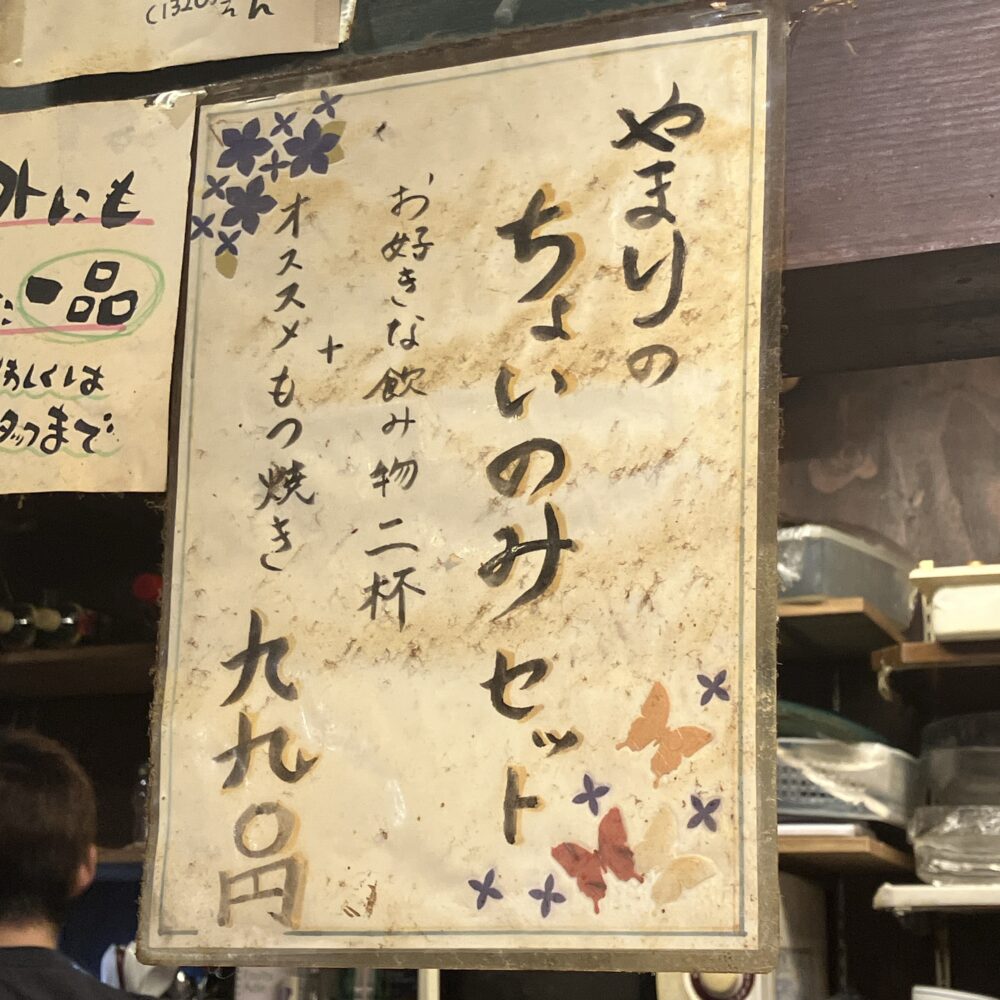 やまりの
ちょいのみセット
お好きな飲み物 二杯
+
オススメもつ焼き
九九〇円
外にも
一品
くわしくは
スタッフまで